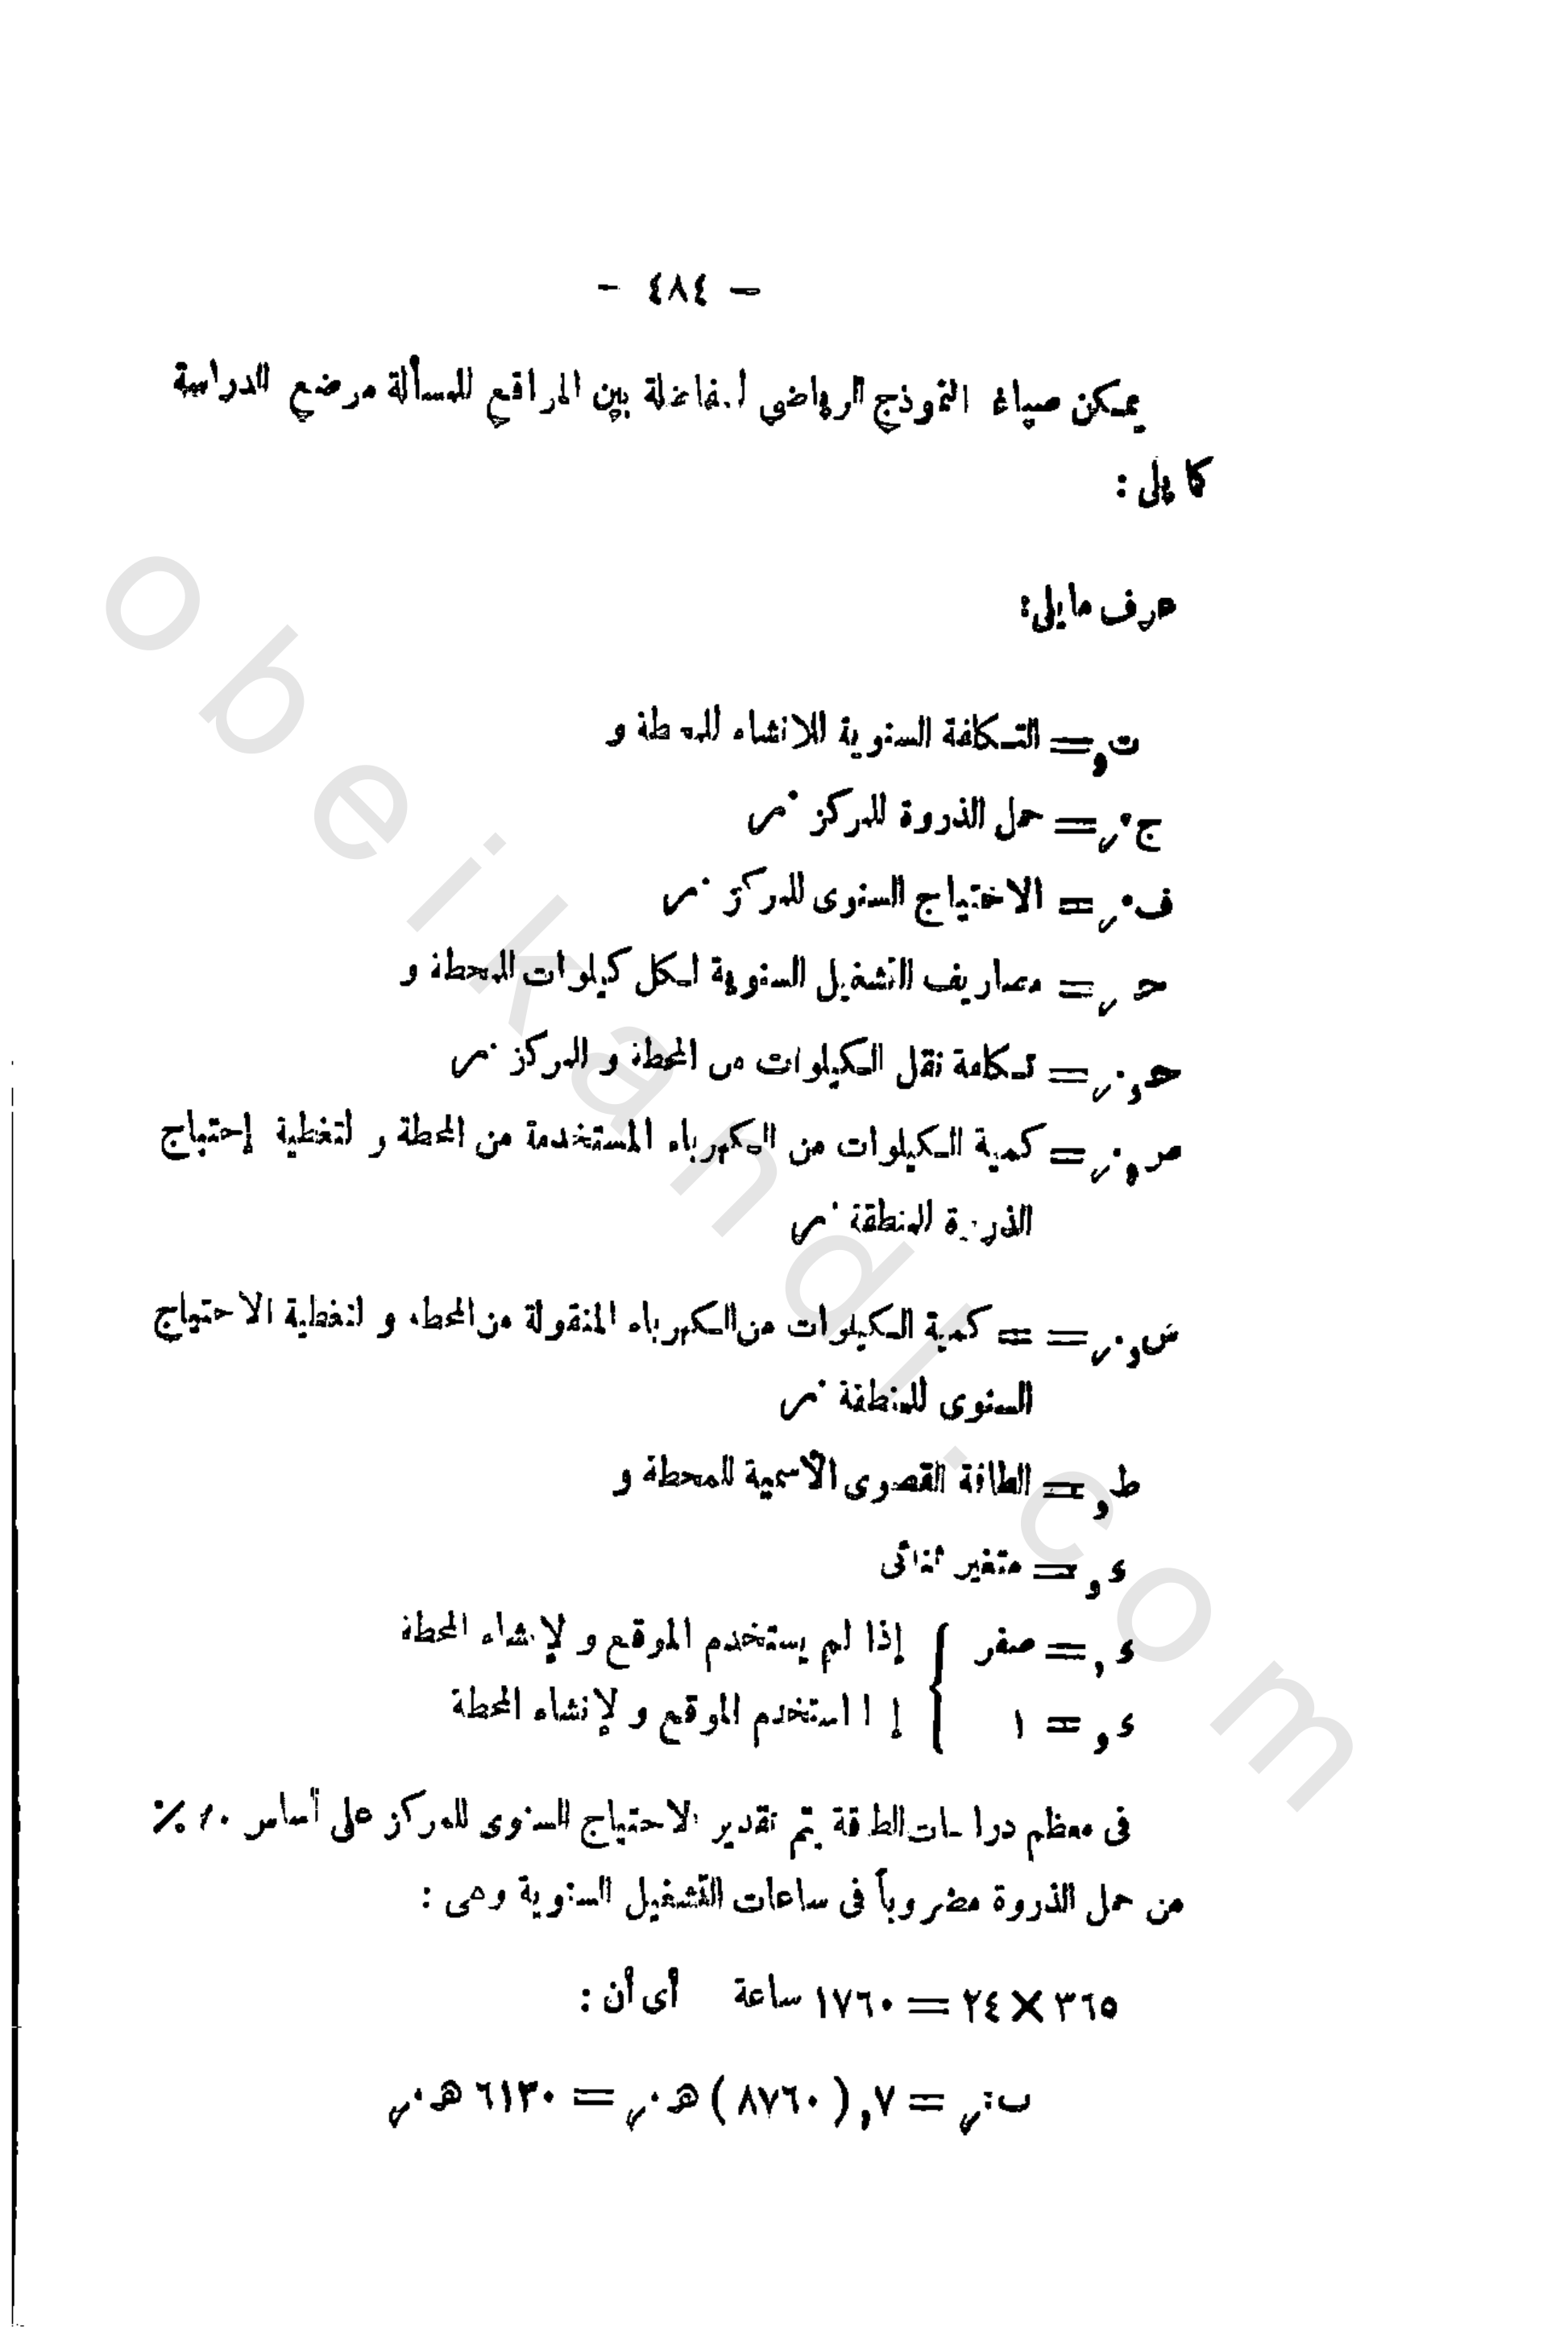 – ٤٨٤ –
يمكن صياغة النموذج الرياضى للمفاضلة بين المواقع للمسألة موضع الدراسة
كما يلى :
عرف ما يلى:
ت و = التكلفة السنوية للانشاء للمحطة و
ج ٠ر = حمل الذروة للمركز ٠ر
ف ٠ر = الاحتياج السنوى للمركز ٠ر
حـ ر = مصاريف التشغيل السنوية لكل كيلوات للمحطة و
حـ و٠ر = تكلفة نقل الكيلوات من المحطة و المركز ٠ر
صر و٠ر = كمية الكيلوات من الكهرباء المستخدمة من المحطة و لتغطية إحتياج
الذروة المنطقة ٠ر
س و٠ر = = كمية الكيلوات من الكهرباء المنقولة من المحطة و لتغطية الاحتياج
السنوى للمنطقة ٠ر
ط و = الطاقة القصوى الأسمية للمحطة و
ء و = متغير ثنائى
ء و = صفر { إذا لم يستخدم الموقع و لإنشاء المحطة
ء و = ١ إذا استخدم الموقع و لإنشاء المحطة
فى معظم دراسات الطاقة يتم تقدير الاحتياج السنوى للمركز على أساس ٪
من حمل الذروة مضروباً فى ساعات التشغيل السنوية وهى :
٣٦٥ × ٢٤ = ١٧٦٠ ساعة أى أن :
ب ٠ر = ٧, (٨٧٦٠) هـ ٠ر = ٦١٣٠ هـ ٠ر
obeikandl.com